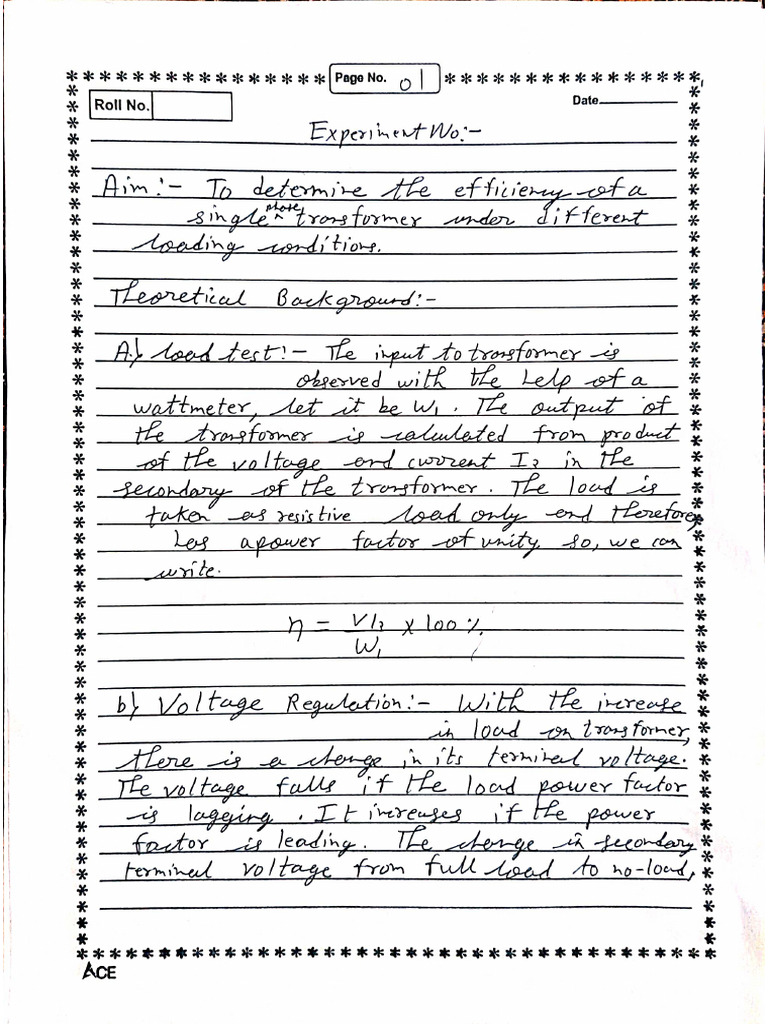 Page No. 01
Roll No.
Date
Experiment No:-
Aim:- To determine the efficiency of a
single phase transformer under different
loading conditions.
Theoretical Background:-
A.) Load test:- The input to transformer is
observed with the help of a
wattmeter, let it be W1. The output of
the transformer is calculated from product
of the voltage and current I2 in the
secondary of the transformer. The load is
taken as resistive load only and therefore,
has a power factor of unity so, we can
write.
η = VI2/W1 x 100 %.
b) Voltage Regulation:- With the increase
in load on transformer,
there is a change in its terminal voltage.
The voltage falls if the load power factor
is lagging. It increases if the power
factor is leading. The change in secondary
terminal voltage from full load to no-load,
ACE